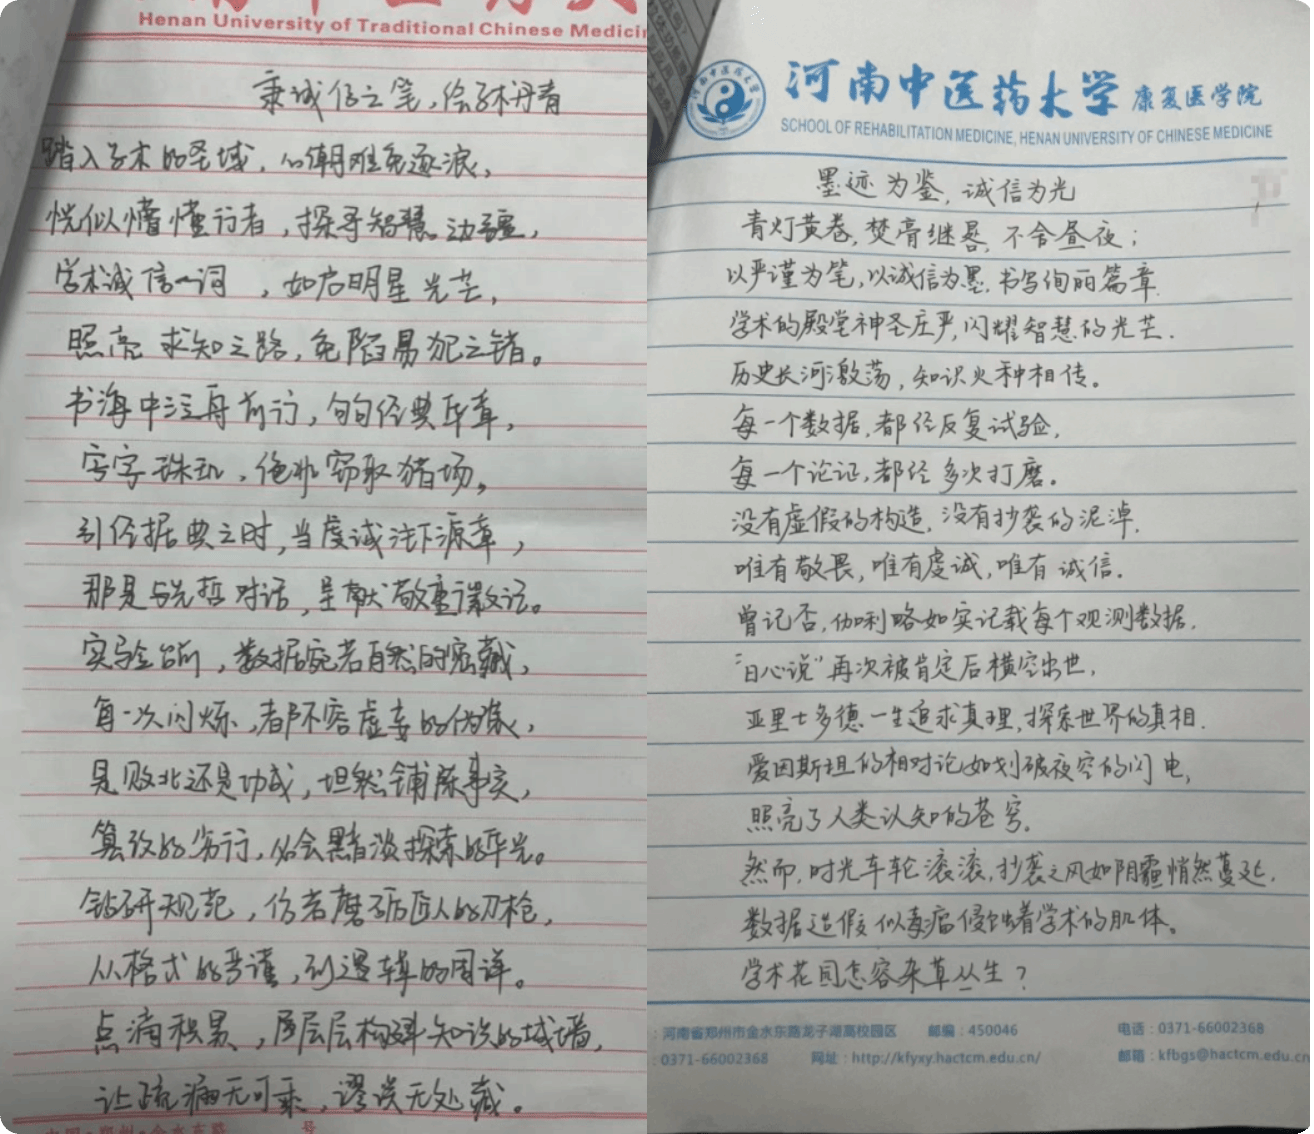 Henan University of Traditional Chinese Medici
秉诚信之笔，绘学术丹青
踏入学术的圣域，心潮难免逐浪，
恍似懵懂行者，探寻智慧边疆，
学术诚信一词，如启明星光芒，
照亮求知之路，免陷易犯之错。
书海中泛舟前行，句句经典华章，
字字珠玑，绝非窃取猎场，
引经据典之时，当虔诚注下源章，
那是与先哲对话，呈献敬重徽记。
实验台前，数据宛若自然的密藏，
每一次闪烁，都不容虚妄的伪装，
是败北还是功成，坦然铺陈事实，
篡改的劣行，必会黯淡探索的华光。
钻研规范，仿若磨砺匠人的刀枪，
从格式的严谨，到遣辞的周详。
点滴积累，层层构建知识的城墙，
让疏漏无可乘，谬误无处藏。
河南中医药大学 康复医学院
SCHOOL OF REHABILITATION MEDICINE, HENAN UNIVERSITY OF CHINESE MEDICINE
墨迹为鉴，诚信为光
青灯黄卷，焚膏继晷，不舍昼夜；
以严谨为笔，以诚信为墨，书写绚丽篇章，
学术的殿堂神圣庄严，闪耀智慧的光芒．
历史长河激荡，知识火种相传。
每一个数据，都经反复试验，
每一个论证，都经多次打磨。
没有虚假的构造，没有抄袭的泥淖，
唯有敬畏，唯有虔诚，唯有诚信．
曾记否，伽利略如实记载每个观测数据，
“日心说”再次被肯定后横空出世，
亚里士多德一生追求真理，探索世界的真相．
爱因斯坦的相对论如划破夜空的闪电，
照亮了人类认知的苍穹。
然而，时光车轮滚滚，抄袭之风如阴霾悄然蔓延，
数据造假似毒瘤侵蚀着学术的肌体。
学术花园怎容杂草丛生？
：河南省郑州市金水东路龙子湖高校园区 邮编：450046 电话：0371-66002368
：0371-66002368 网址：http://kfyxy.hactcm.edu.cn/ 邮箱：kfbgs@hactcm.edu.cn